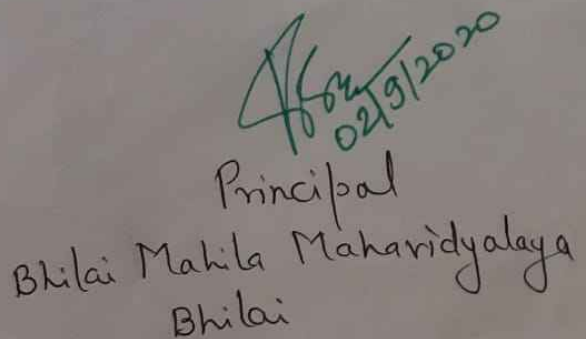 02/9/2020
Principal
Bhilai Mahila Mahavidyalaya
Bhilai